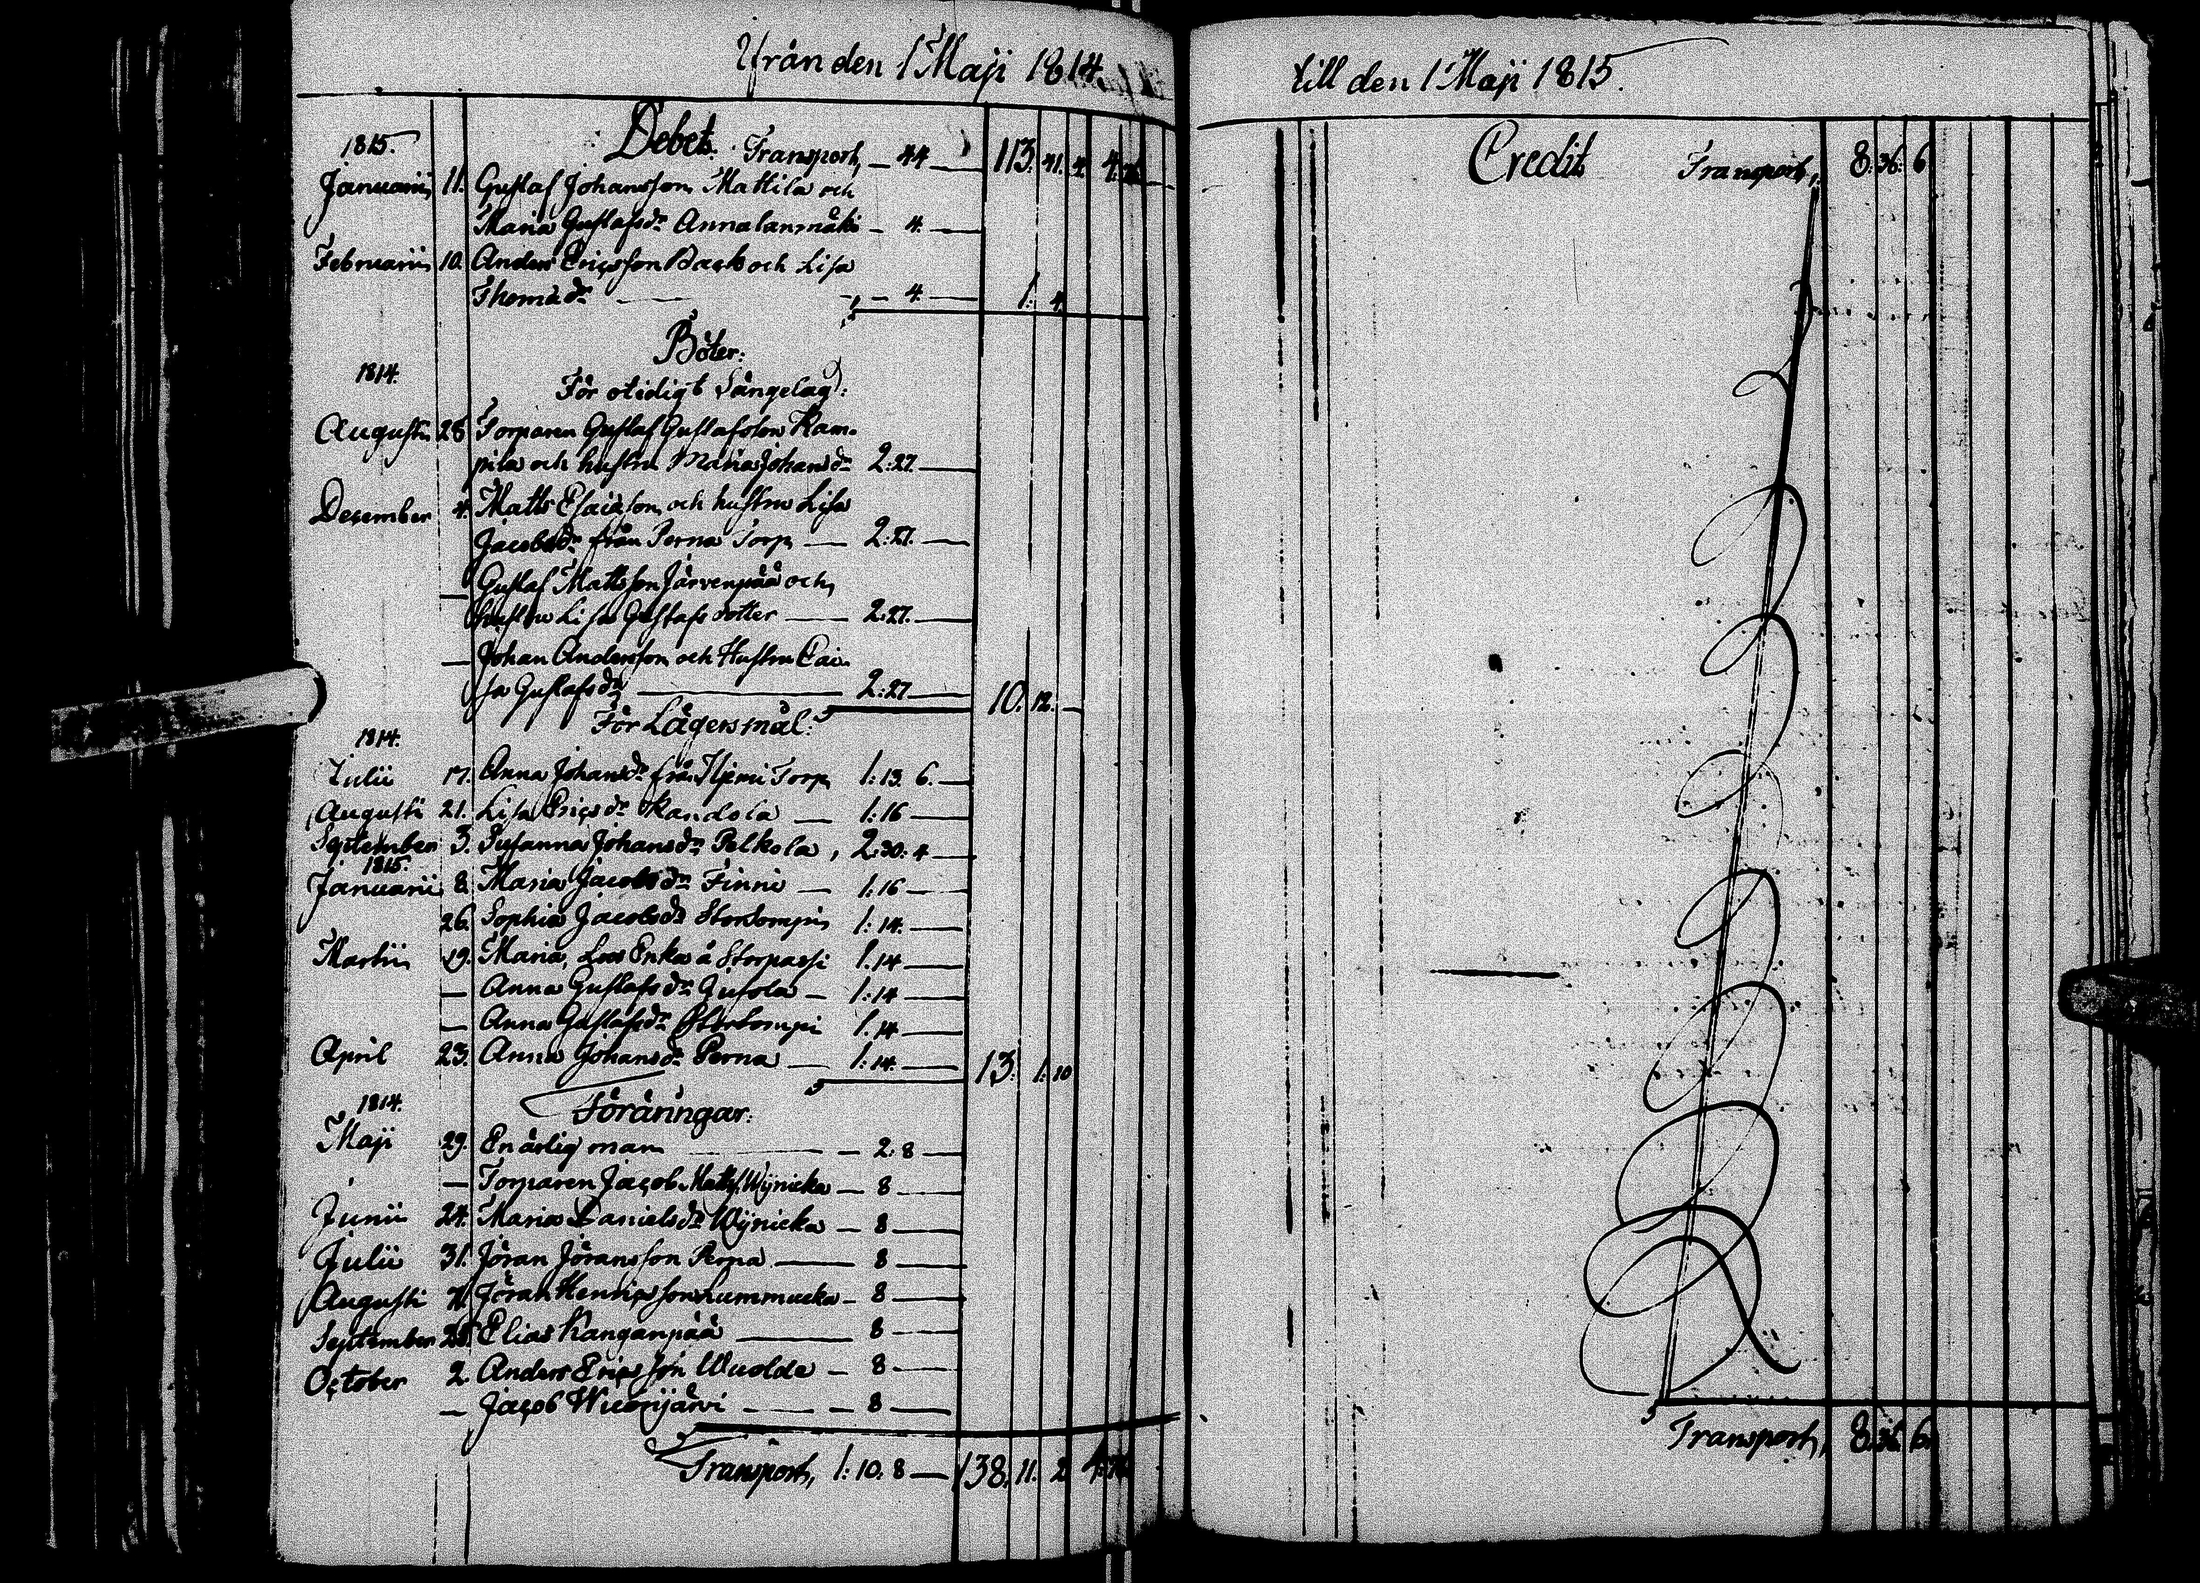 Från den 1 Maji 1814.
1815. Debet. Transport, — 44 — 113. 41. 4. 4:
Januarii 11. Gustaf Johansson Mattila och
Maria Gustafsdr Annalanmäki — 4. —
Februarii 10. Anders Ericsson Back och Lisa
Thomædr — 4. — 1. 4.
Böter:
1814. För otidigt Sängelag:
Augusti 28 Torparen Gustaf Gustafsson Kam-
pila och hustru Maria Johansdr 2:27. —
December 4. Matts Esaiasson och hustru Lisa
Jacobsdr från Perna Torp — 2:27. —
— Gustaf Mattsson Järvenpää och
hustru Lisa Gustafsdotter — 2:27. —
— Johan Andersson och Hustru Cai-
sa Gustafsdr — 2:27 — 10. 12. —
För Lägersmål:
1814.
Julii 17. Anna Johansdr från Torp 1:13. 6. —
Augusti 21. Lisa Ericsdr Kandola — 1:16 —
September 3. Susanna Johansdr Pelkola, 2:30:4 —
1815.
Januarii 8. Maria Jacobsdr Finni — 1:16 —
26. Sophia Jacobsdr Storsompi 1:14. —
Martii 19. Maria, Loos Enka å Storpassi 1.14 —
— Anna Gustafsdr — 1:14 —
— Anna Gustafsdr Storsompi 1.14 —
April 23. Anna Johansdr Perna — 1:14. — 13. 1:10
1814. Föräringar:
Maji 29. En ärlig man — 2:8 —
— Torparen Jacob Matts. Wynicka — 8 —
Junii 24. Maria Danielsdr Wynicka — 8 —
Julii 31. Jöran Jöransson Perna — 8 —
Augusti Jöran Henricsson Lummucka — 8 —
September 25. Elias Kanganpää — 8 —
October 2. Anders Ericsson Wuolde — 8 —
— Jacob Wuorijärvi — 8 —
Transport, 1:10:8 — 138. 11. 2
till den 1 Maji 1815.
Credit Transport, 8:36:6
Transport, 8:36:6